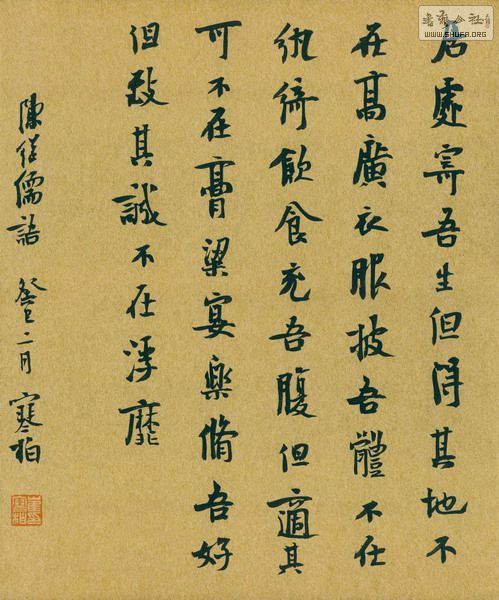 居處寄吾生但得其地不
在高廣衣服披吾體不在
紈綺飲食充吾腹但適其
可不在膏粱宴樂脩吾好
但致其誠不在浮靡
陳继儒語 癸巳二月 寒柏
書藝公社
WWW.SHUFA.ORG